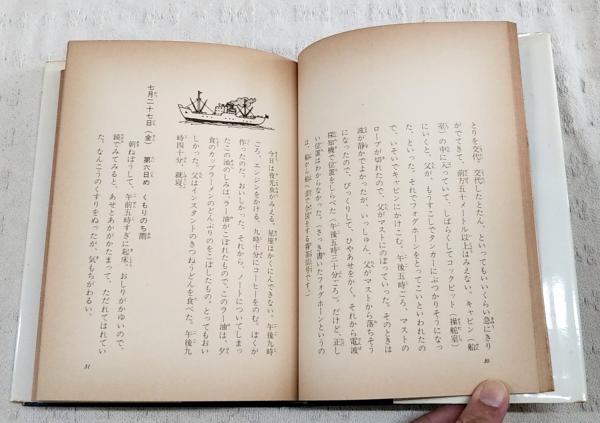 とりを交代。交代したとたん、といってもいいくらい急にきり
がでてきて、前方五十メートル以上はみえない。キャビン（船
室）の中に入っていて、しばらくしてコックピット（操舵室）
にいくと、父が、もうすこしでタンカーにぶつかりそうになっ
た、といった。それでフォグホーンをとってこいといわれたの
で、いそいでキャビンにかけこむ。午後五時ごろ、マストの
ロープが切れたので、父がマストにのぼっていった。そのときは
波が静かでよかったが、いっしゅん、父がマストから落ちそう
になったので、びっくりして、ひやあせをかく。それから電波
探知機で位置をしらべた（午後五時三十分ごろ）。だけど、正し
い位置はわからなかった。（さっき書いたフォグホーンというの
は、船から船へ音で合図をする
30
今日は夜光虫がみえる。星座はかくにんできない。午後九時
ころ、エンジンをかける。九時十分にコーヒーをのむ。ぼくが
作ったのだ。おいしかった。それから、ノートについてしまっ
たこの油のしみは、ラー油がこぼれたもので、このラー油は、夕
食のカップラーメンのどんぶりのをこぼしたもの。とってもおい
しかった。父はインスタントのきつねうどんを食べた。午後九
時四十分、就寝。
七月二十七日（金） 第六日め くもりのち雨
朝ねぼうして、午前五時すぎに起床。おしりがかゆいので、
鏡でみてみると、あせとあかがかたまって、ただれてはれてい
た。なんこうのくすりをぬったが、気もちがわるい。
31